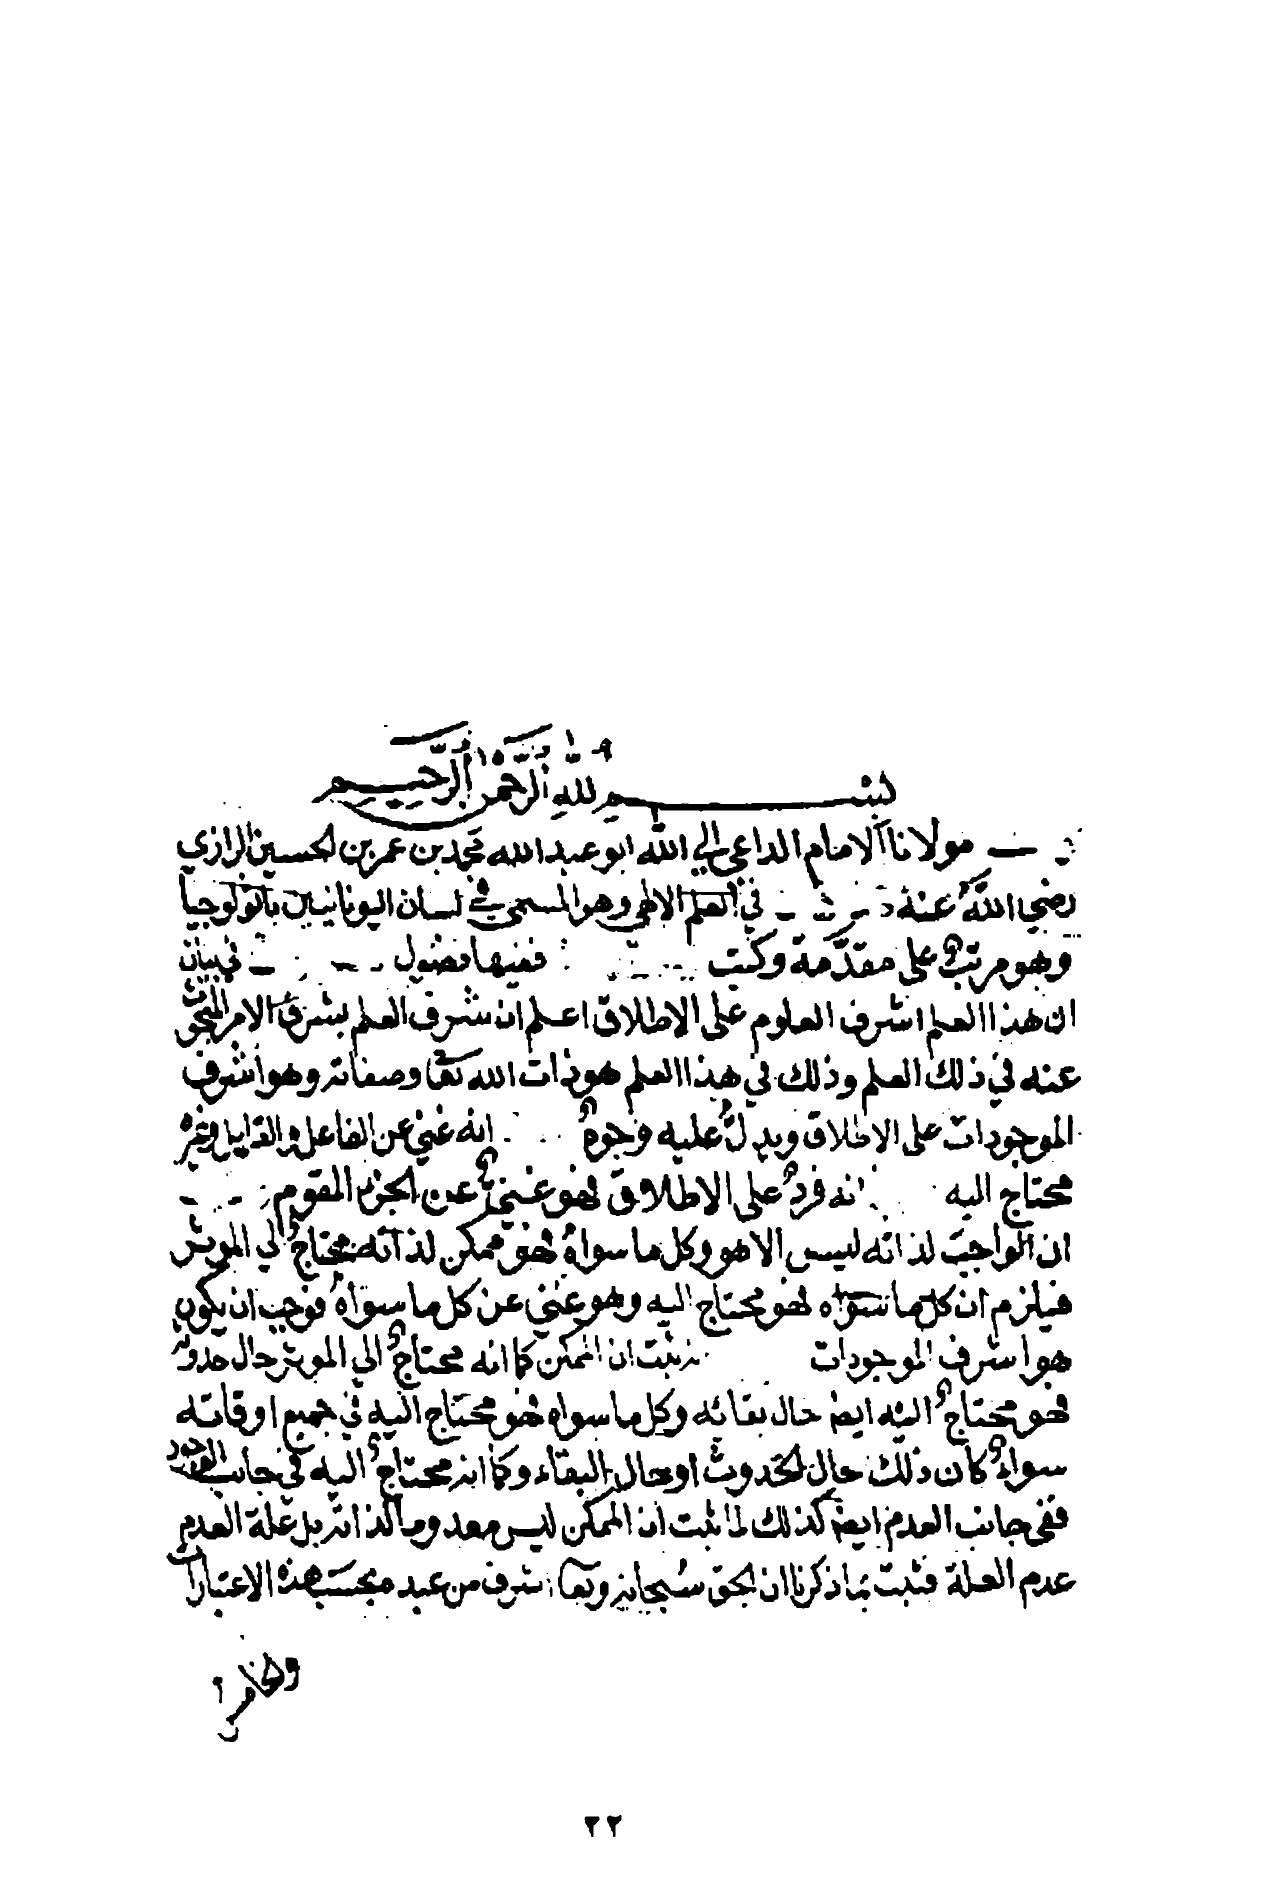 بسم الله الرحمن الرحيم
مولانا الامام الداعي الي الله ابو عبد الله محمد بن عمر بن الحسين الرازي
رضي الله عنه في العلم الالهي وهو المسمى في لسان اليونانيين باثولوجيا
وهو مرتب على مقدمة وكتب ففيها فصول في بيان
ان هذا العلم اشرف العلوم على الاطلاق اعلم ان شرف العلم بشرف الامر المبحوث
عنه في ذلك العلم وذلك في هذا العلم هو ذات الله تعا وصفاته وهو اشرف
الموجودات على الاطلاق ويدل عليه وجوه انه غني عن الفاعل والقابل وغيره
محتاج اليه انه فرد على الاطلاق فهو غني عن الجزء المقوم
ان الواجب لذاته ليس الا هو وكل ما سواه فهو ممكن لذاته محتاج الي الموثر
فيلزم ان كل ما سواه فهو محتاج اليه وهو غني عن كل ما سواه فوجب ان يكون
هو اشرف الموجودات ثبت ان الممكن كما انه محتاج الي الموثر حال حدوثه
فهو محتاج اليه ايضا حال بقائه وكل ما سواه فهو محتاج اليه في جميع اوقاته
سواء كان ذلك حال الحدوث او حال البقاء وكما انه محتاج اليه في جانب الوجود
ففي جانب العدم ايضا كذلك لما ثبت ان الممكن ليس معدوما لذاته بل علة العدم
عدم العلة فثبت بما ذكرنا ان الحق سبحانه وتعا اشرف من عبد فبحسب هذه الاعتبارات
٢٢